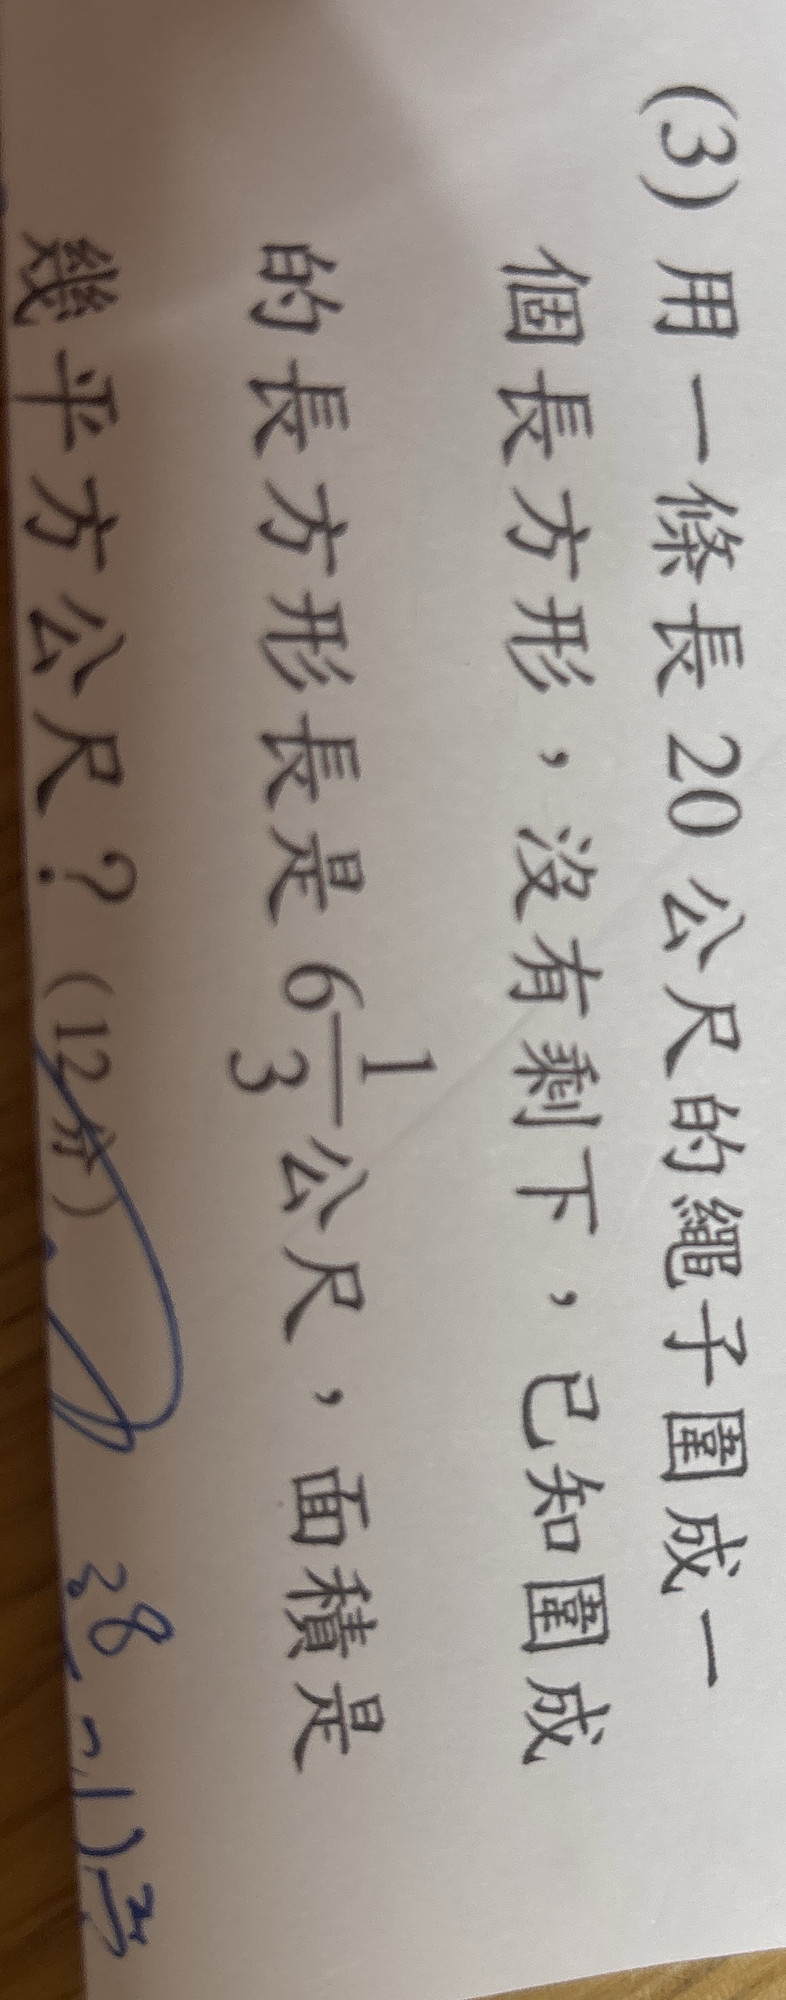 (3) 用一條長 20 公尺的繩子圍成一
個長方形，沒有剩下，已知圍成
的長方形長是 6 1/3 公尺，面積是
幾平方公尺？(12分)